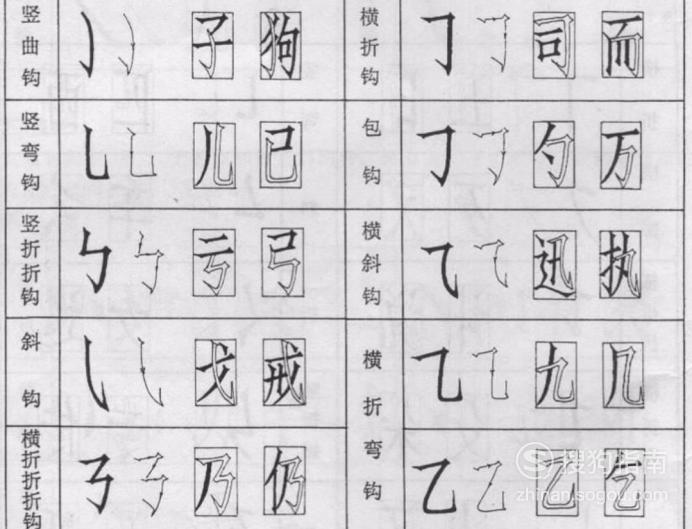 竖曲钩 子 狗
横折钩 司 而
竖弯钩 儿 已
包钩 勺 万
竖折折钩 亏 弓
横斜钩 迅 执
斜钩 戈 戒
横折弯钩 九 几
横折折折钩 乃 仍
乙 乞
搜狗指南
zhinan.sogou.com